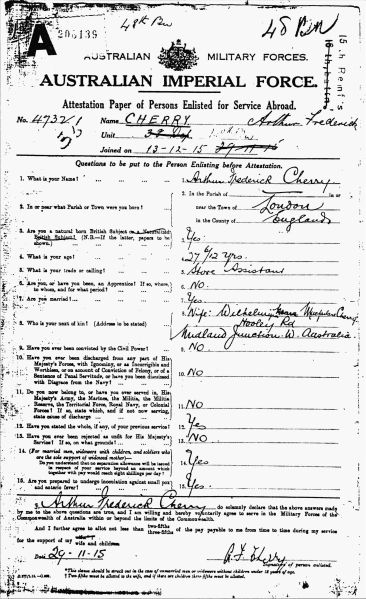 A 206139 48th Bn 48 Bn
15th Reinfs
AUSTRALIAN MILITARY FORCES.
AUSTRALIAN IMPERIAL FORCE.
Attestation Paper of Persons Enlisted for Service Abroad.
No. 4732 Name CHERRY Arthur Frederick
Unit
Joined on 13-12-15 29-11-15
Questions to be put to the Person Enlisting before Attestation.
1. What is your Name? Arthur Frederick Cherry
2. In or near what Parish or Town were you born? 2. In the Parish of in or
near the Town of London
in the County of England
3. Are you a natural born British Subject or a Naturalized
British Subject? (N.B.—If the latter, papers to be
shown.) 3. Yes
4. What is your age? 4. 27 6/12 yrs.
5. What is your trade or calling? 5. Store Assistant
6. Are you, or have you been, an Apprentice? If so, where,
to whom, and for what period? 6. NO
7. Are you married? 7. Yes
8. Who is your next of kin? (Address to be stated) 8. Wife: Cherry
Rd
Midland Junction W. Australia
9. Have you ever been convicted by the Civil Power? 9. NO
10. Have you ever been discharged from any part of His
Majesty's Forces, with Ignominy, or as Incorrigible and
Worthless, or on account of Conviction of Felony, or of a
Sentence of Penal Servitude, or have you been dismissed
with Disgrace from the Navy? 10. NO
11. Do you now belong to, or have you ever served in, His
Majesty's Army, the Marines, the Militia, the Militia
Reserve, the Territorial Force, Royal Navy, or Colonial
Forces? If so, state which, and if not now serving,
state cause of discharge 11. NO
12. Have you stated the whole, if any, of your previous service? 12. Yes
13. Have you ever been rejected as unfit for His Majesty's
Service? If so, on what grounds? 13. NO
14. (For married men, widowers with children, and soldiers who
are the sole support of widowed mother)—
Do you understand that no separation allowance will be issued
in respect of your service beyond an amount which
together with pay would reach eight shillings per day? 14. Yes
15. Are you prepared to undergo inoculation against small pox
and enteric fever? 15. Yes
I, Arthur Frederick Cherry do solemnly declare that the above answers made
by me to the above questions are true, and I am willing and hereby voluntarily agree to serve in the Military Forces of the
Commonwealth of Australia within or beyond the limits of the Commonwealth.
And I further agree to allot not less than two-fifths three-fifths of the pay payable to me from time to time during my service
for the support of my wife and children.
Date 29-11-15 A F Cherry
Signature of person enlisted.
* This clause should be struck out in the case of unmarried men or widowers without children under 18 years of age.
† Two-fifths must be allotted to the wife, and if there are children three-fifths must be allotted.